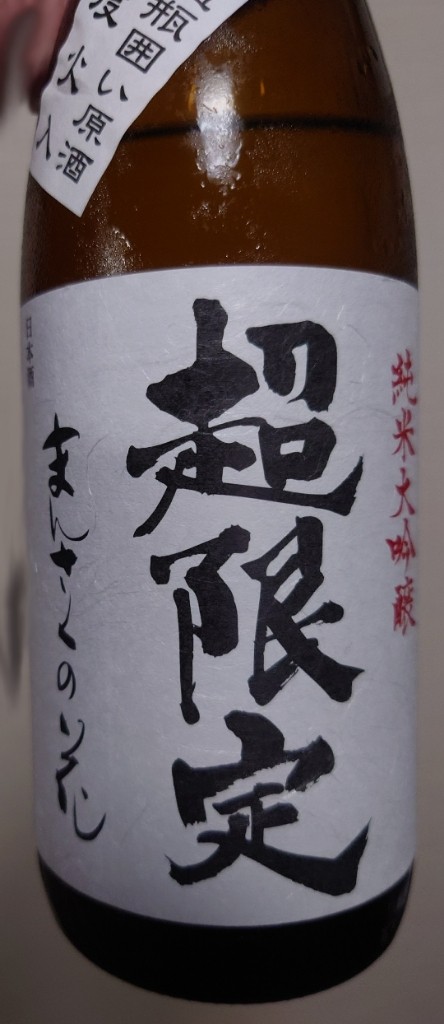 瓶囲い原酒
火入
純米大吟醸
超限定
まんさくの花
日本酒